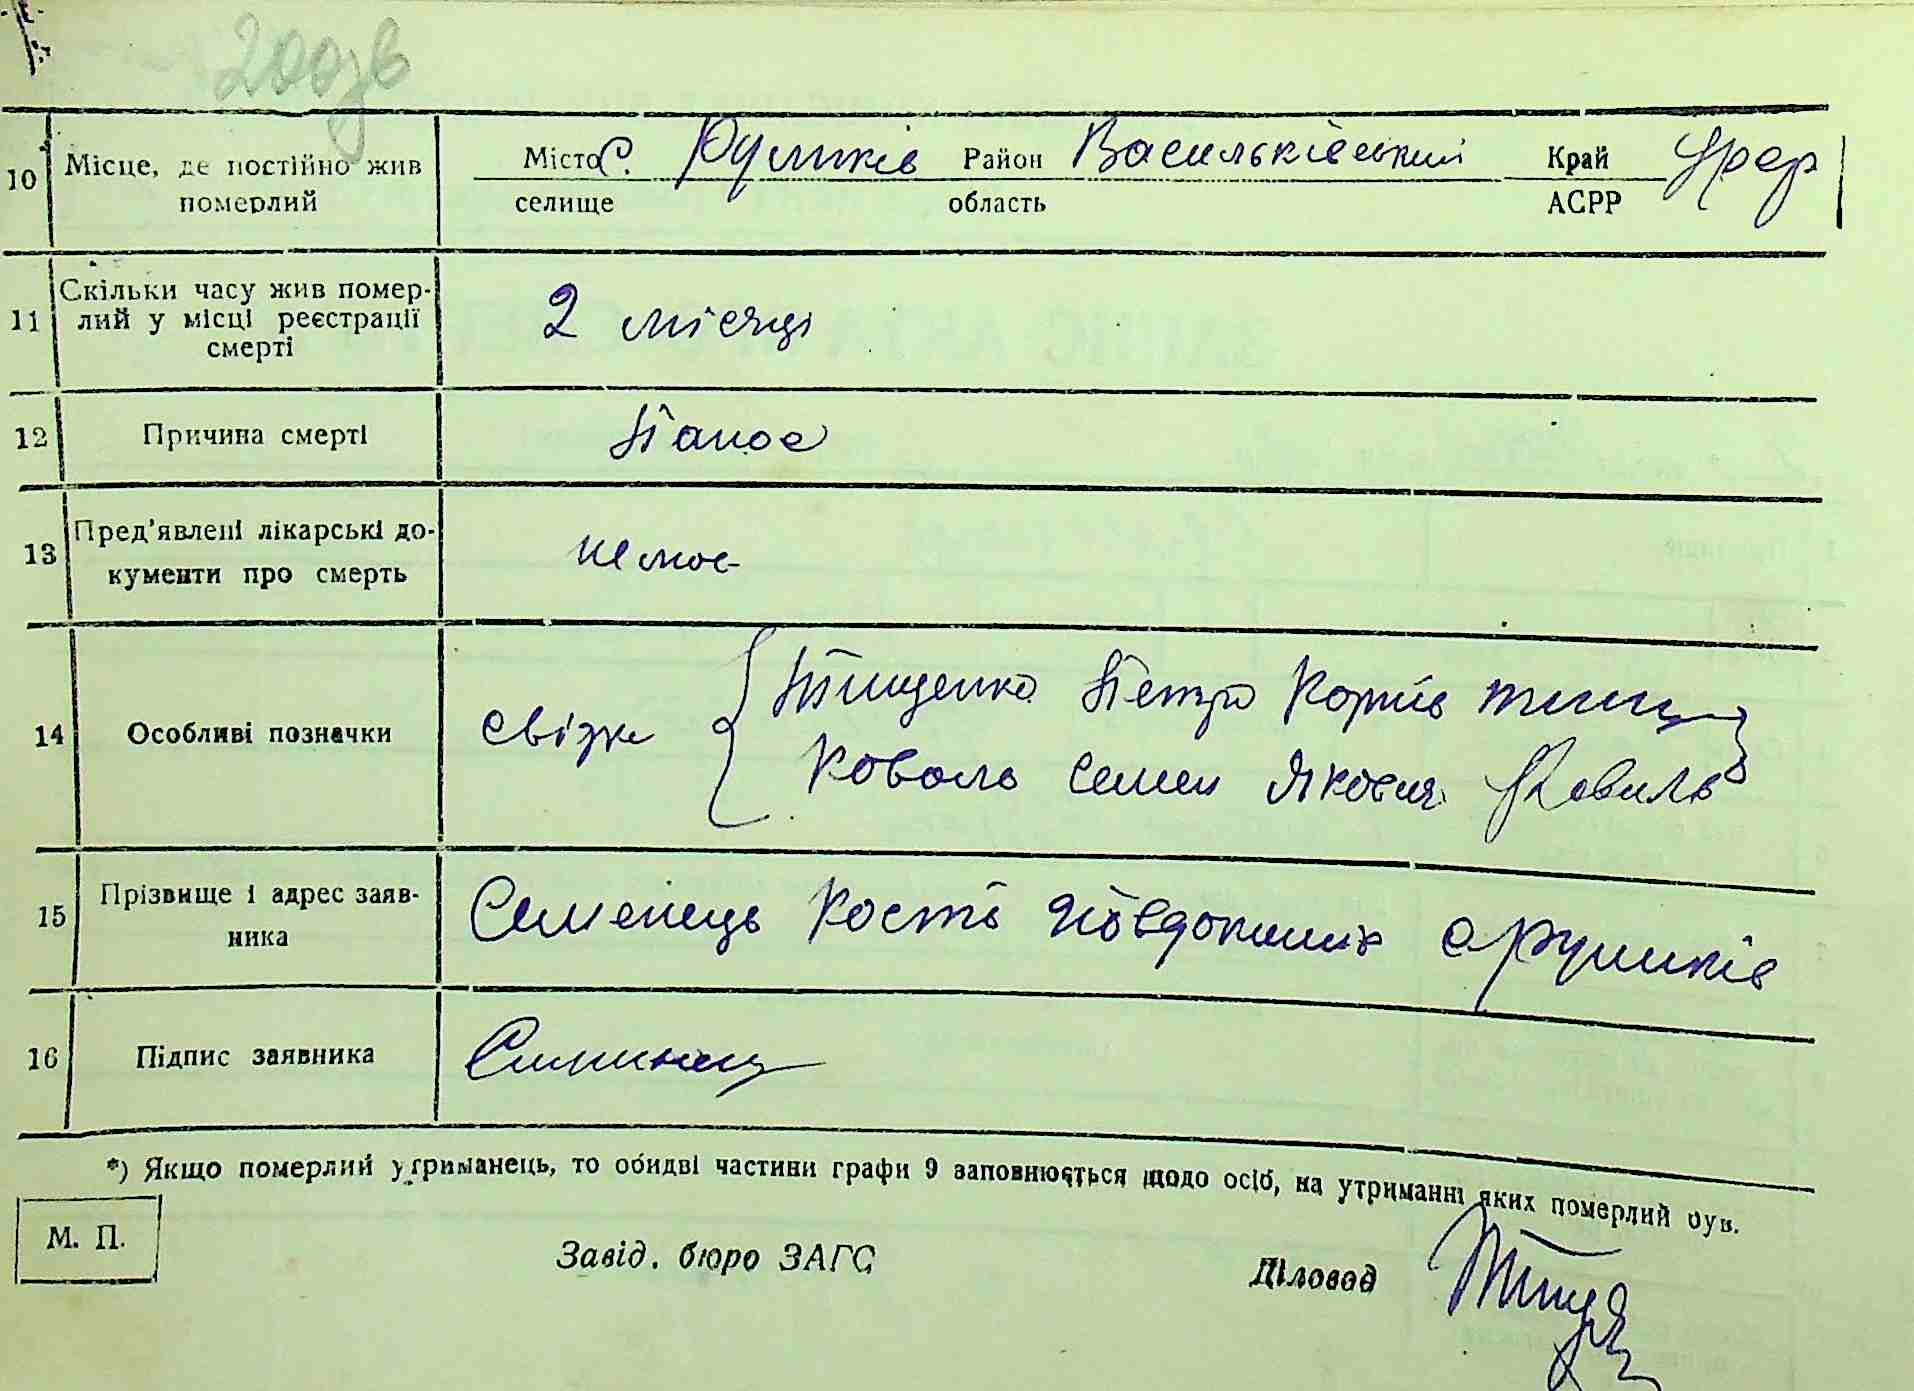 10 Місце, де постійно жив померлий
Місто с. Рушків Район Васильківський Край УРСР
селище область АСРР
11 Скільки часу жив помер-
лий у місці реєстрації
смерті
2 місяці
12 Причина смерті
13 Пред'явлені лікарські до-
кументи про смерть
немає
14 Особливі позначки
свідки
Тищенко Петро Корнів
Коваль Семен Якович Коваль
15 Прізвище і адрес заяв-
ника
Семенець Кость Явдокимів с Рушків
16 Підпис заявника
*) Якщо померлий утриманець, то обидві частини графи 9 заповнюється щодо осіб, на утриманні яких померлий був.
М. П.
Завід. бюро ЗАГС
Діловод